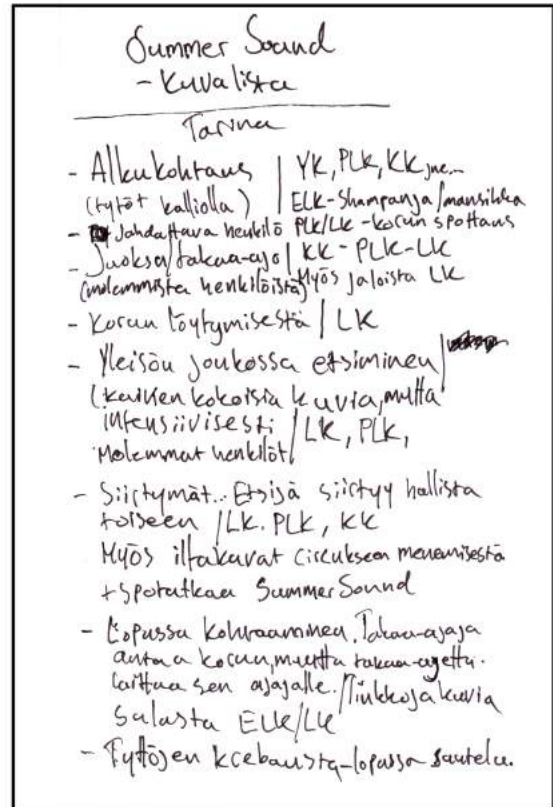 Summer Sound
- Kuvalista
Tarina
- Alkukohtaus / YK, PLK, KK jne...
(tytöt kalliolla) / ELK - Shampanja/mansikka
- Jahdattava henkilö PLK/LK - korun spottaus
- Juoksu/takaa-ajo / KK - PLK - LK
(molemmista henkilöistä) Myös jaloista LK
- Korun löytymisestä / LK
- Yleisön joukossa etsiminen /
(kaiken kokoisia kuvia, mutta
intensiivisesti / LK, PLK,
Molemmat henkilöt/
- Siirtymät... Etsijä siirtyy hallista
toiseen / LK. PLK, KK
Myös iltakuvat circukseen menemisestä
+ Spotatkaa SummerSound
- Lopussa kohtaaminen. Takaa-ajaja
antaa korun, mutta takaa-ajettu.
laittaa sen ajajalle. / Tiukkoja kuvia
Salasta ELK/LK
- Tyttöjen -lopussa